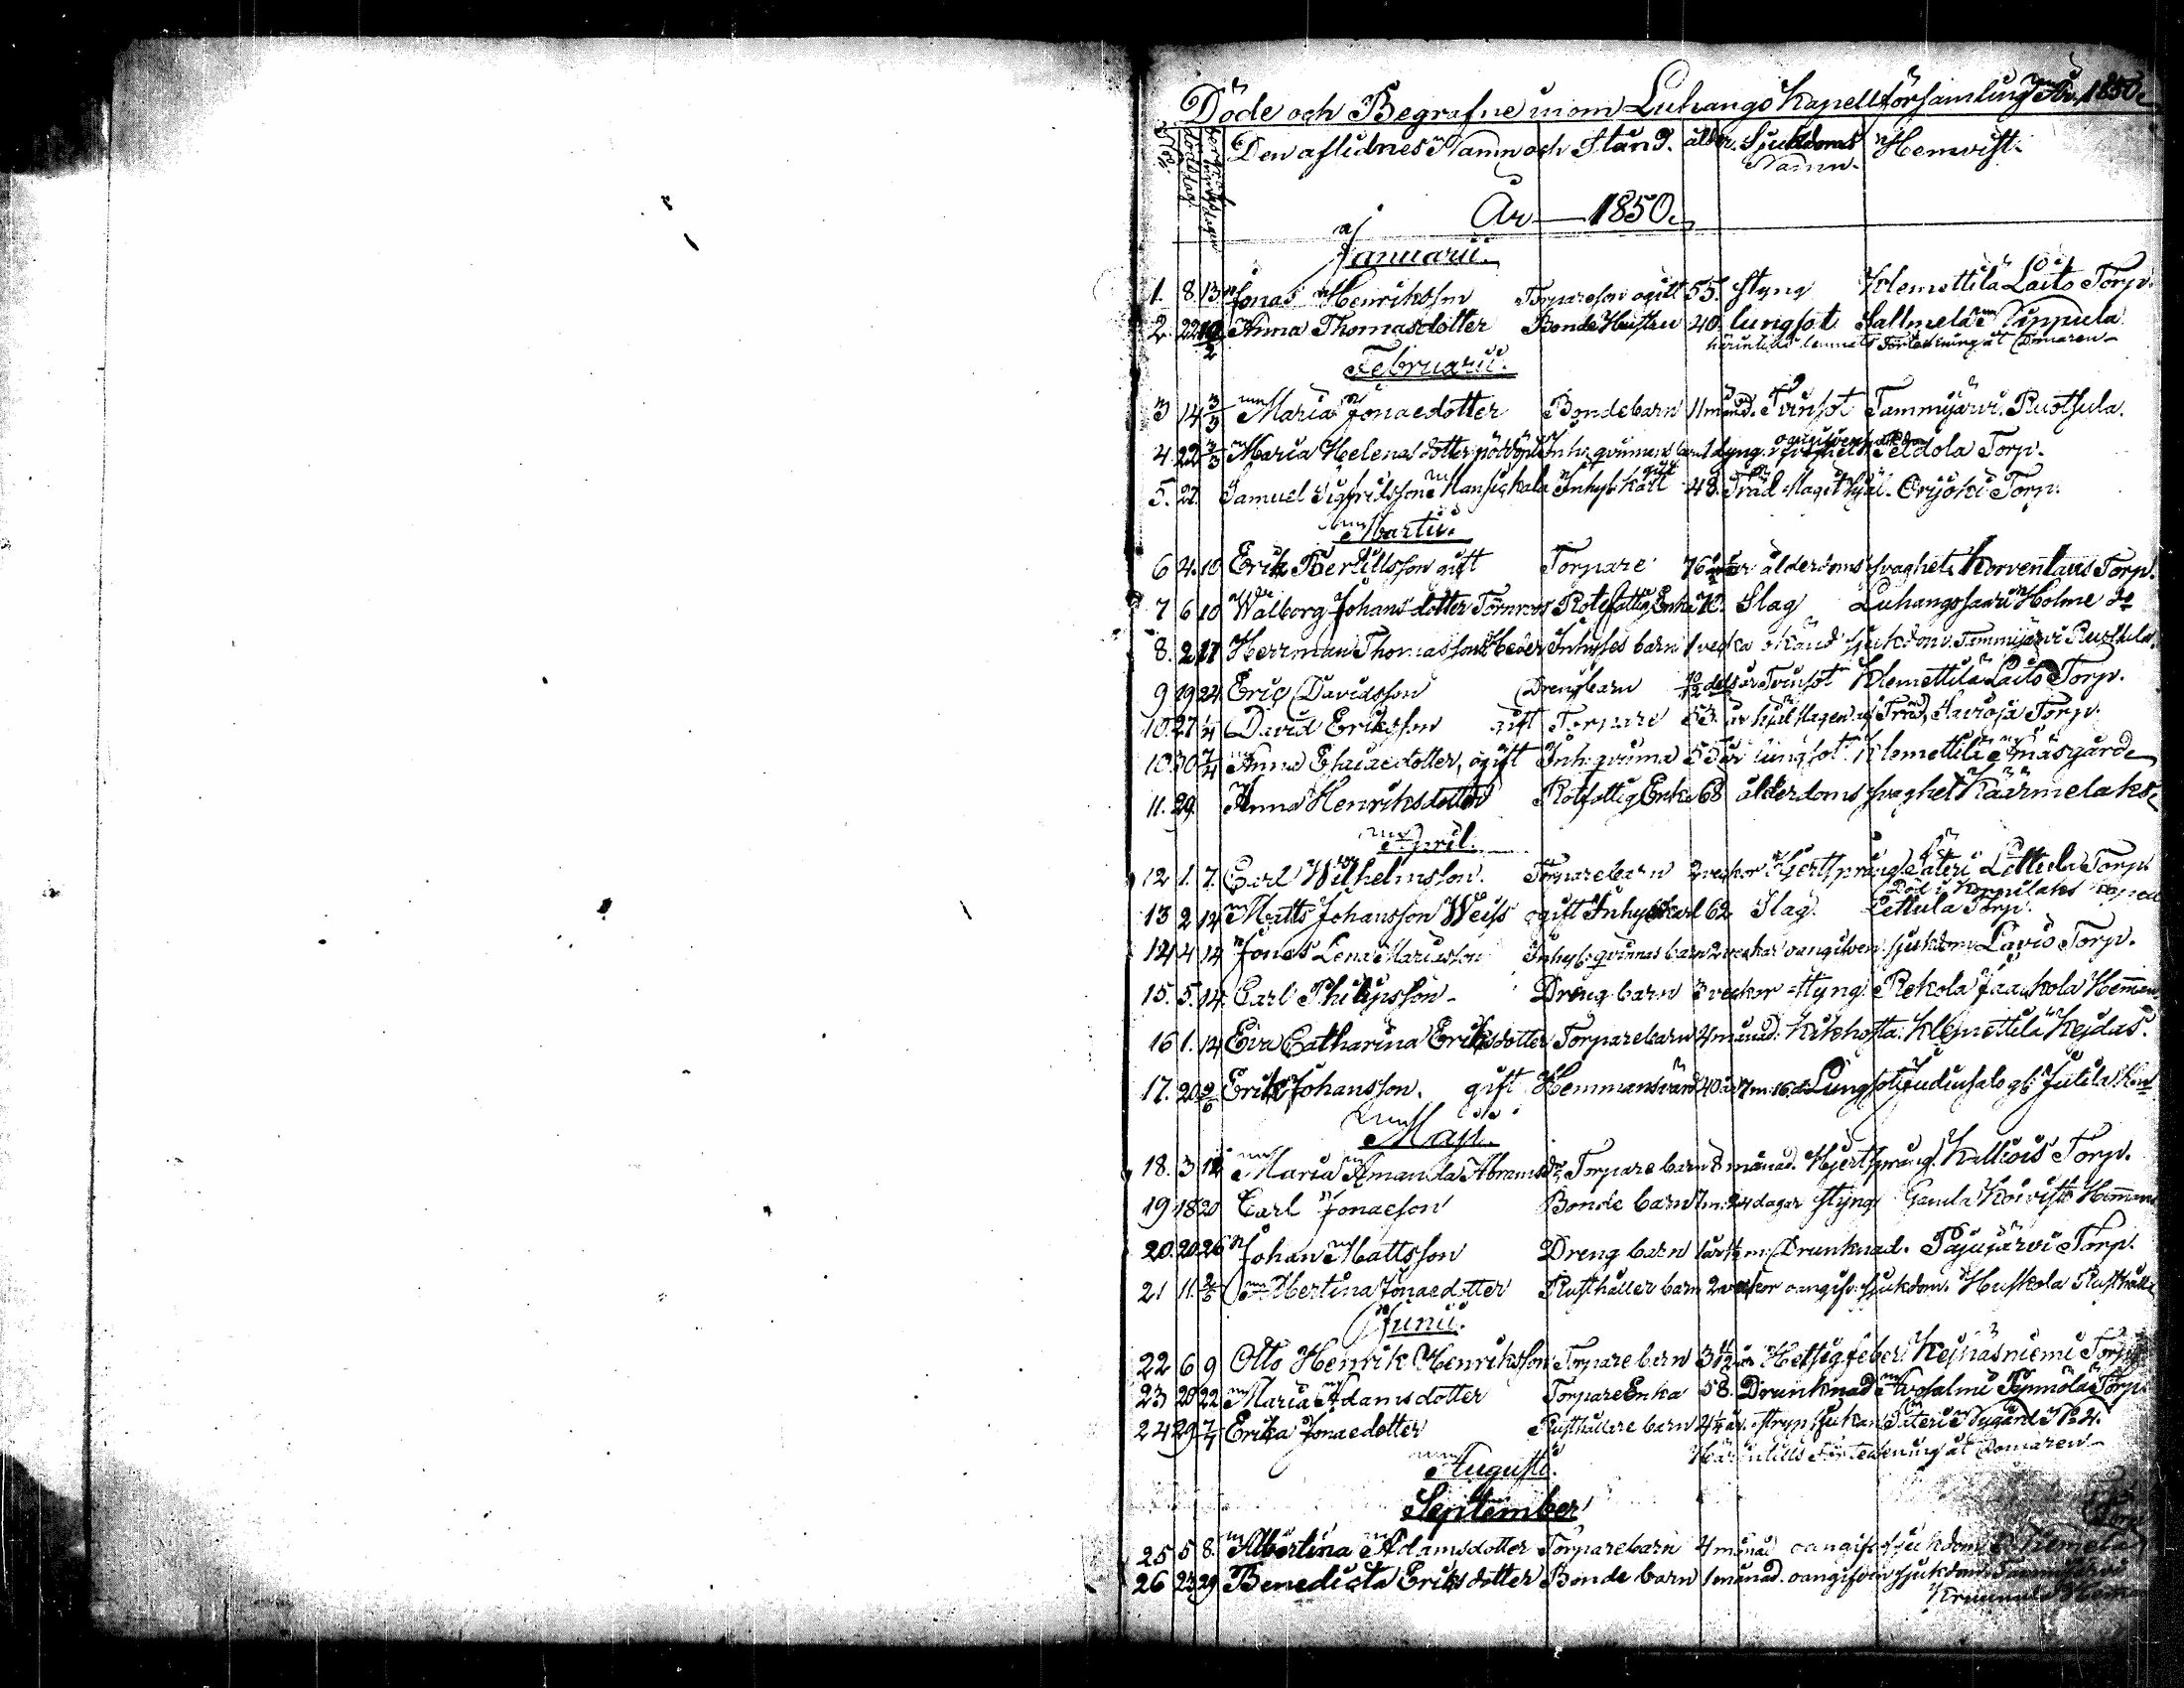 Döde och Begrafne inom Luhango Kapellförsamling År 1850.
No dödsdag begrafningsdagen Den aflidnes Namn och Stånd. ålder. Sjukdoms Namn. Hemvist.
År 1850.
Januarii.
1. 8. 13. Jonas Henriksson Torpareson ogift 55. styng Klemettilä Laito Torp.
2. 22 10/2 Anna Thomasdotter Bonde Hustru 40. lungsot Sallmela Nippula
härintills lemnats Förteckning åt Domaren
Februarii.
3 14 3/3 Maria Jonaedotter Bondebarn 11 månad. Tvinsot Tammijärvi Ruotsula.
4 22 3/3 Maria Helenasdotter Inh. qvinnans barn 1 dygn oangifven sjukdom Peldola Torp.
5. 22. Samuel Sigfridsson Manskala Inhys. karl gift 48. Träd slagit ihjäl. Orijoki Torp.
Martii.
6 4. 10 Erik Bertillsson gift Torpare 76 år ålderdoms svaghet Korvenlaus Torp.
7 6 10 Walborg Johansdotter Törnroos Rotefattig Enka 70. Slag Luhangsaari Holme do
8. 2 17 Herrman Thomasson Heder Inhyses barn 1 vecka okänd sjukdom. Tammijärvi Ruotsula.
9 19 24. Eric Davidsson Drengbarn 10/12 dels år Tvinsot Klemettilä Laito Torp.
10. 27 1/4 David Eriksson gift Torpare 53. år ihjälslagen af Träd, Torp.
10 30 7/4 Anna Esaiaedotter, ogift Inh. qvinna 55 år lungsot. Klemettilä Anäsgård
11. 29. Anna Henriksdotter Rotfattig Enka 68 ålderdoms svaghet Käärmelaks
April.
12 1. 7. Carl Wilhelmsson. Torparebarn 2 veckor Hjertsprång Säteri Lettula Torp.
Död i Korpilaks Capell
13 2 14 Matts Johansson Weiss ogift Inhys karl 62 Slag. Lettula Torp.
14 4 14 Jonas Lena Mariasson Inhys qvinnas barn 2 veckor oangifven sjukdom Lavio Torp.
15. 5. 14. Carl Philipsson Dreng barn 3 veckor styng Rekola Jaakkola Hemman
16 1. 14 Eva Catharina Eriksdotter Torparebarn 4 månad. Kikhosta. Klemettilä Keidas.
17. 20 2/6 Erik Johansson. gift Hemmansvärd 40 år 7 m. 16 d. Lungsot Judinsalo Julila
Maji.
18. 3 12 Maria Amanda Abramsdr Torpare barn 8 månad. Hjertsprång. Kalliois Torp.
19 18 20 Carl Jonaeson Bonde barn 7 m. 24 dagar styng Gamla Koivisto Hemman
20. 20 26 Johan Mattsson Dreng barn 1 år 1/2 m. Drunknad. Pajujärvi Torp.
21 11. 2/6 Albertina Jonaedotter Rusthåller barn 2 veckor oangifv. sjukdom. Huskola Rusthåll
Junii.
22 6 9 Otto Henrik Henriksson Torpare barn 3 1/2 år Hetsig feber Keihäsniemi Torp
23 20 22 Maria Adamsdotter Torpare Enka 58. Drunknad Avosalmi Torp.
24 29 7/7 Erika Jonaedotter Rusthållare barn 4 1/2 år. strypsjukan Säteri Nygård No 4.
Härintills Förteckning åt Domaren
Augusti.
September
Torp
25 5 8. Albertina Adamsdotter Torparebarn 4 månad oangifv. sjukdom
26 23 29 Benedicta Eriksdotter Bonde barn 1 månad. oangifven sjukdom Tammijärvi